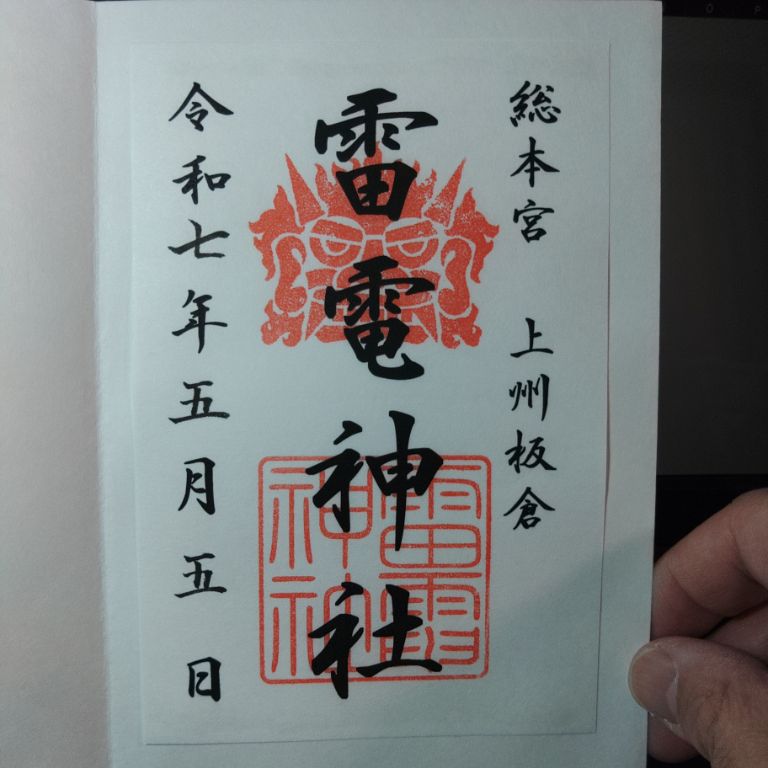 総本宮 上州板倉
雷電神社
令和七年五月五日
雷電神社